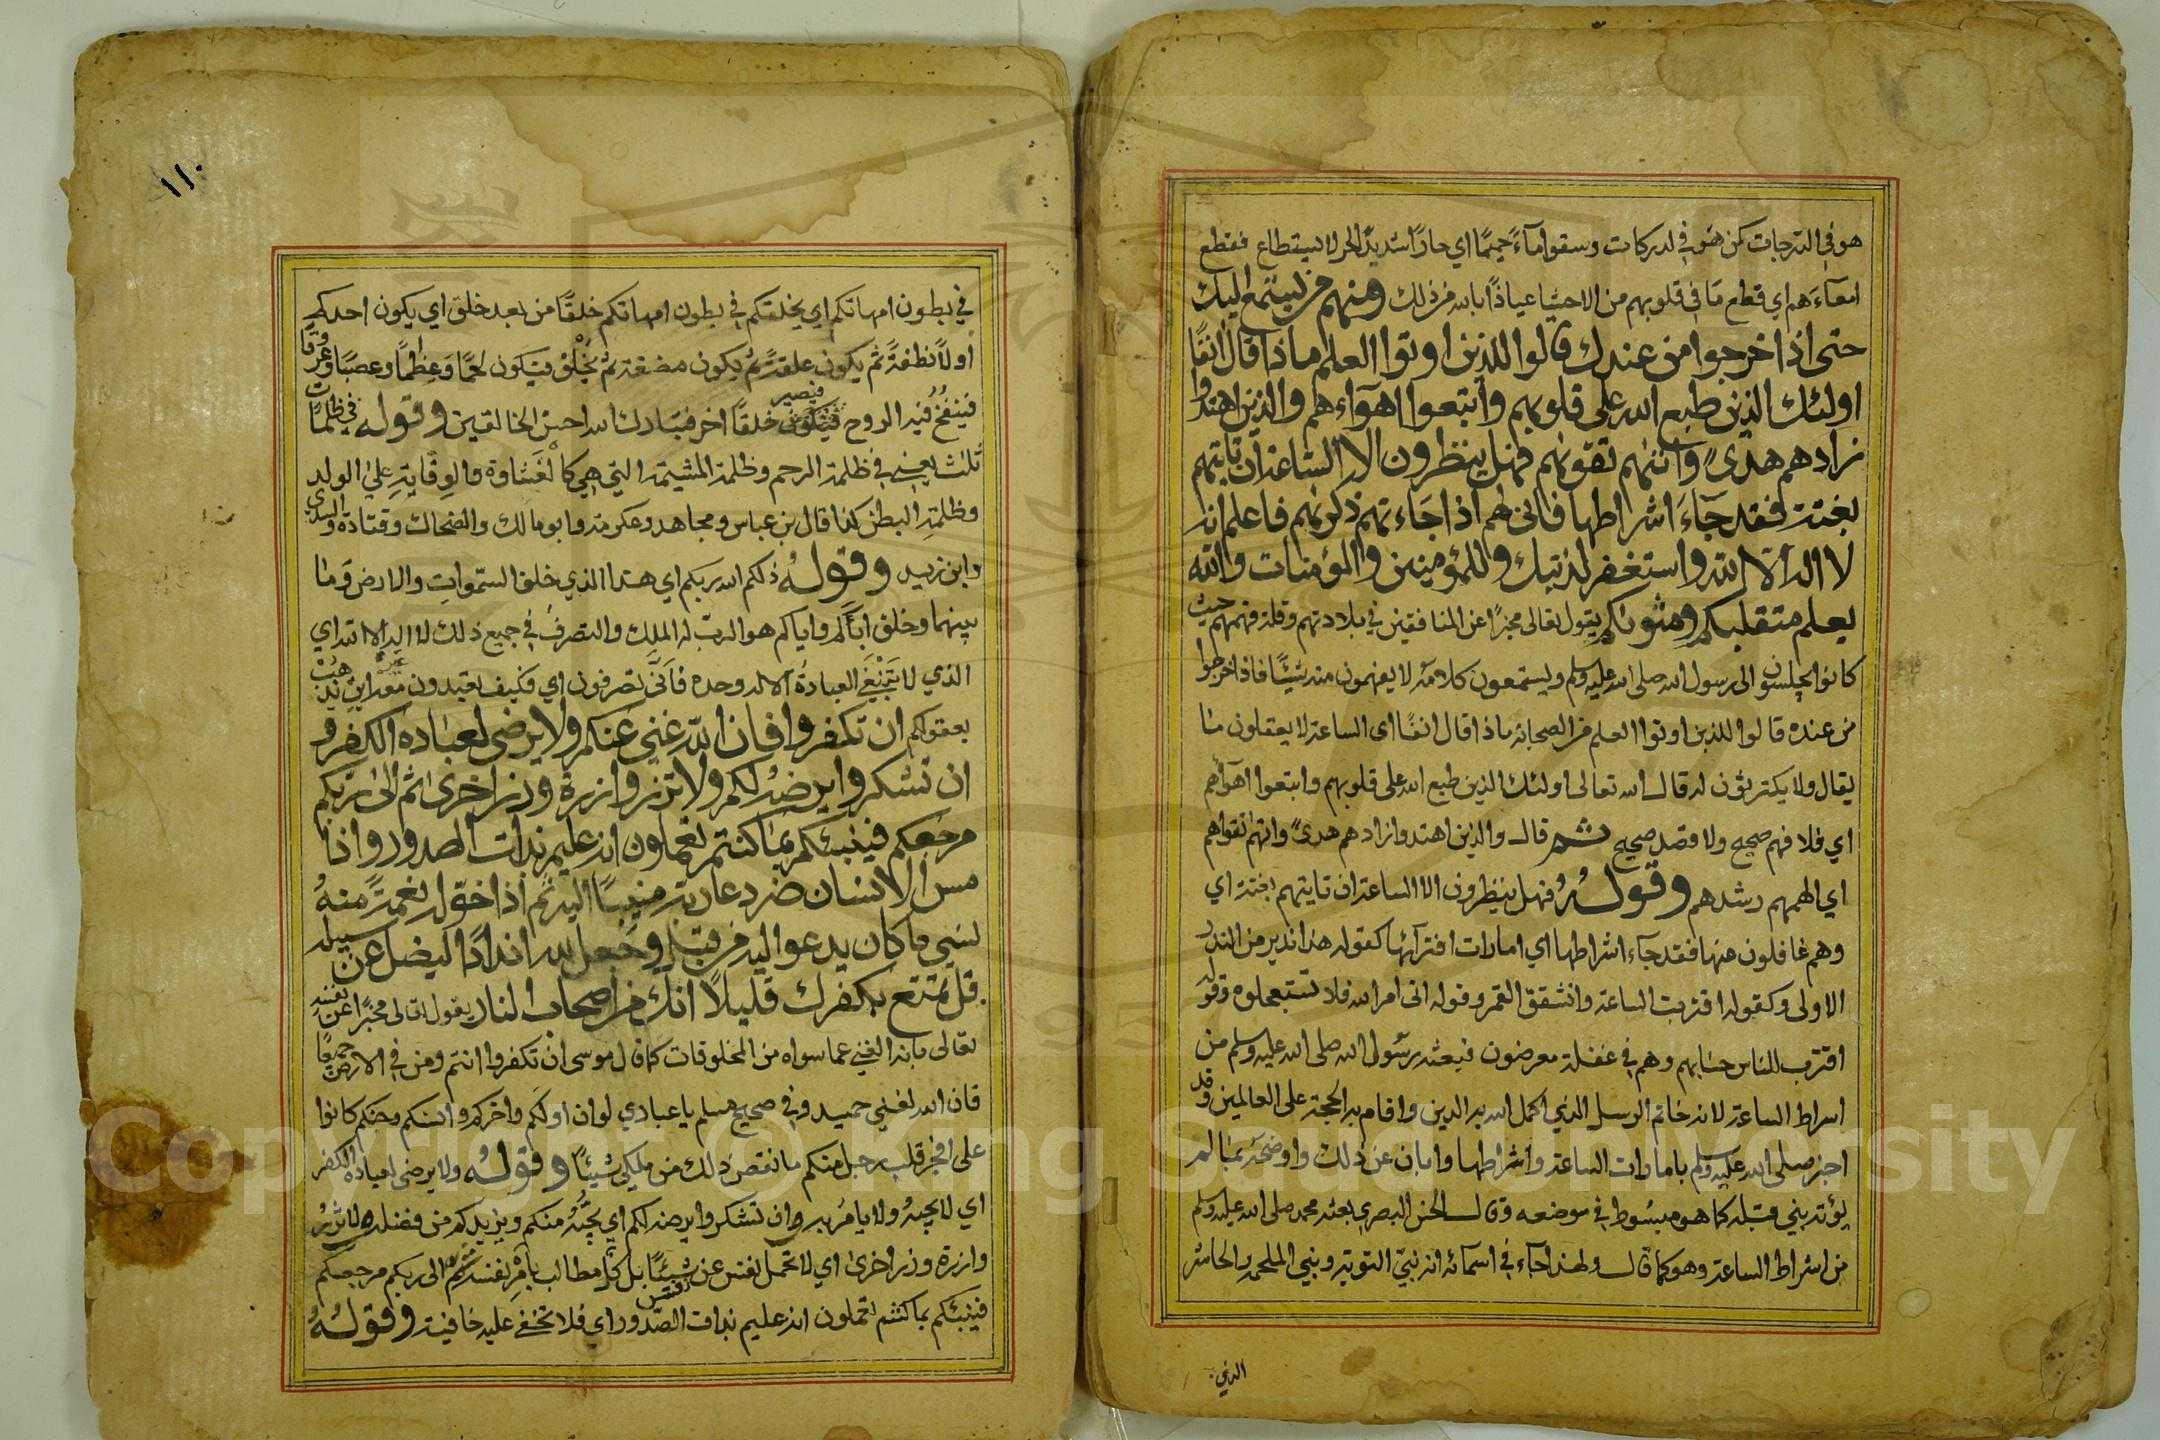 هو في الدرجات كمن هو في لدركات وسقوا مآءً حميمًا اي حارًا شديدَ الحر لا يستطاع فقطع
امعآءَهم اي قطع مَا في قلوبهم من الاحشا عياذًا بالله من ذلك ومنهم من يستمع اليك
حتى اذا خرجوا من عندك قالوا للذين اوتوا العلم ماذا قال انفًا
اولئك الذين طبع الله على قلوبهم واتبعوا اهوآءهم والذين اهتدوا
زادهم هدىً وآتهم تقوىهم فهل ينظرون الا الساعة ان تاتيهم
بغتت فقد جآءَ اشراطها فانى لهم اذا جَاءتهم ذكرىهم فاعلم انه
لا اله الا الله واستغفر لذنبك وللمؤمنين والمؤمنات والله
يعلم متقلبكم ومثوىكم يقول تعالى مخبرًا عن المنافقين في بلادتهم وقلة فهمهم حيث
كانوا يجلسون الى رسول الله صلى الله عليه وسلم ويستمعون كلامه لا يفهمون منه شيئًا فاذا خرجوا
من عنده قالوا للذين اوتوا العلم من الصحابة ماذا قال انفًا اى الساعة لا يعقلون ما
يقال ولا يكترثون له قال الله تعالى اولئك الذين طبع الله على قلوبهم واتبعوا اهوآهم
اي فلا فهم صحيح ولا قصد صحيح ثم قال والذين اهتدوا زادهم هدىً واتهم تقواهم
اي الهمهم رشدهم وقولهُ فهل ينظرون الا الساعة ان تاتيهم بغتة اي
وهم غافلون عنها فقد جآء اشراطها اي امارات اقترابها كقوله هذا نذير من النذر
الاولى وكقوله اقتربت الساعة وانشقق القمر وقوله اتى امر الله فلا تستعجلوه وقوله
اقترب للناس حسابهم وهم في غفلة معرضون فبعثه رسول الله صلى الله عليه وسلم من
اسراط الساعة لانه خاتم الرسل الذي اكمل الله به الدين واقام به الحجة على العالمين وقد
اخبر صلى الله عليه وسلم بامارات الساعة واشراطها وابان عن ذلك واوضحه بما لم
يؤته نبي قبله كما هو مبسوط في موضعه وقال الحسن البصري بعثه محمد صلى الله عليه وسلم
من اشراط الساعة وهو كما قال ولهذا جآء في اسمائه انه نبيّ التوبة ونبي الملحمة والحاشر
الذي
١١٠
في بطون امهاتكم اي يخلقكم في بطون امهاتكم خلقًا من بعد خلق اي يكون احدكم
أولاً نطفةً ثم يكون علقةً ثم يكون مضغة ثم يُخْلَقُ فيكون لحمًا وَعِظمًا وعصبًا وعروقًا
فينفخُ فيه الروح فيصير خلقًا اخر فتبارك الله احسن الخالقين وقوله في ظلمات
ثلث يعني في ظلمة الرحم وظلمة المشيمة التي هي كالغشاوة والوقاية على الولد
وظلمة البطن كذا قال بن عباس ومجاهد وعكرمة وابو مالك والضحاك وقتادة والسدي
وابن زيد وقولهُ ذلكم الله ربكم اي هذا الذي خلق السّموات والارض وَمَا
بينهما وخلق اباكم واياكم هو الرب له الملك والتصرف في جميع ذلك لا اله الا الله اي
الذي لا يَنْبَغي العبادة الا له وحده فانّى تصرفون اي فكيف تعبدون معه غيره اين ذهبت
بعقولكم ان تكفروا فان الله غني عنكم ولا يرضى لعباده الكفر و
ان تشكروا يرضه لكم ولا تزر وازرة وزر اخرى ثم الى ربكم
مرجعكم فينبئكم بما كنتم تعملون انه عليم بذات الصدور واذا
مس الانسان ضر دعا ربه منيبًا اليه ثم اذا خوّله نعمةً منهُ
نسي ما كان يدعوا اليه من قبل وجعل لله اندادًا ليضل عن سبيله
قل تمتع بكفرك قليلاً انك من اصحاب النار يقول تعالى مخبرًا عن نفسه
تعالى بانه الغني عما سواه من المخلوقات كما قال موسى ان تكفروا انتم ومن في الارض جميعًا
فان الله لغني حميد وفي صحيح مسلم يا عبادي لو ان اولكم واخركم وانسكم وجنكم كانوا
على افجر قلب رجل منكم ما نقص ذلك من ملكي شيئًا وقولهُ ولا يرضى لعباده الكفر
اي لا يحبهُ ولا يامُر به وان تشكروا يرضه لكم اي يحبُّهُ منكم ويزيدكم من فضله ولا تزرُ
وازرة وزر اخرى اي لا تحمل نفس عن نفس شيئًا بل كل مطالب بأمر نفسه ثم الى ربكم مرجعكم
فينبئكم بما كنتم تعملون انه عليم بذات الصّدور اي فلا تخفى عليه خافية وقولهُ
Copyright © King Saud University